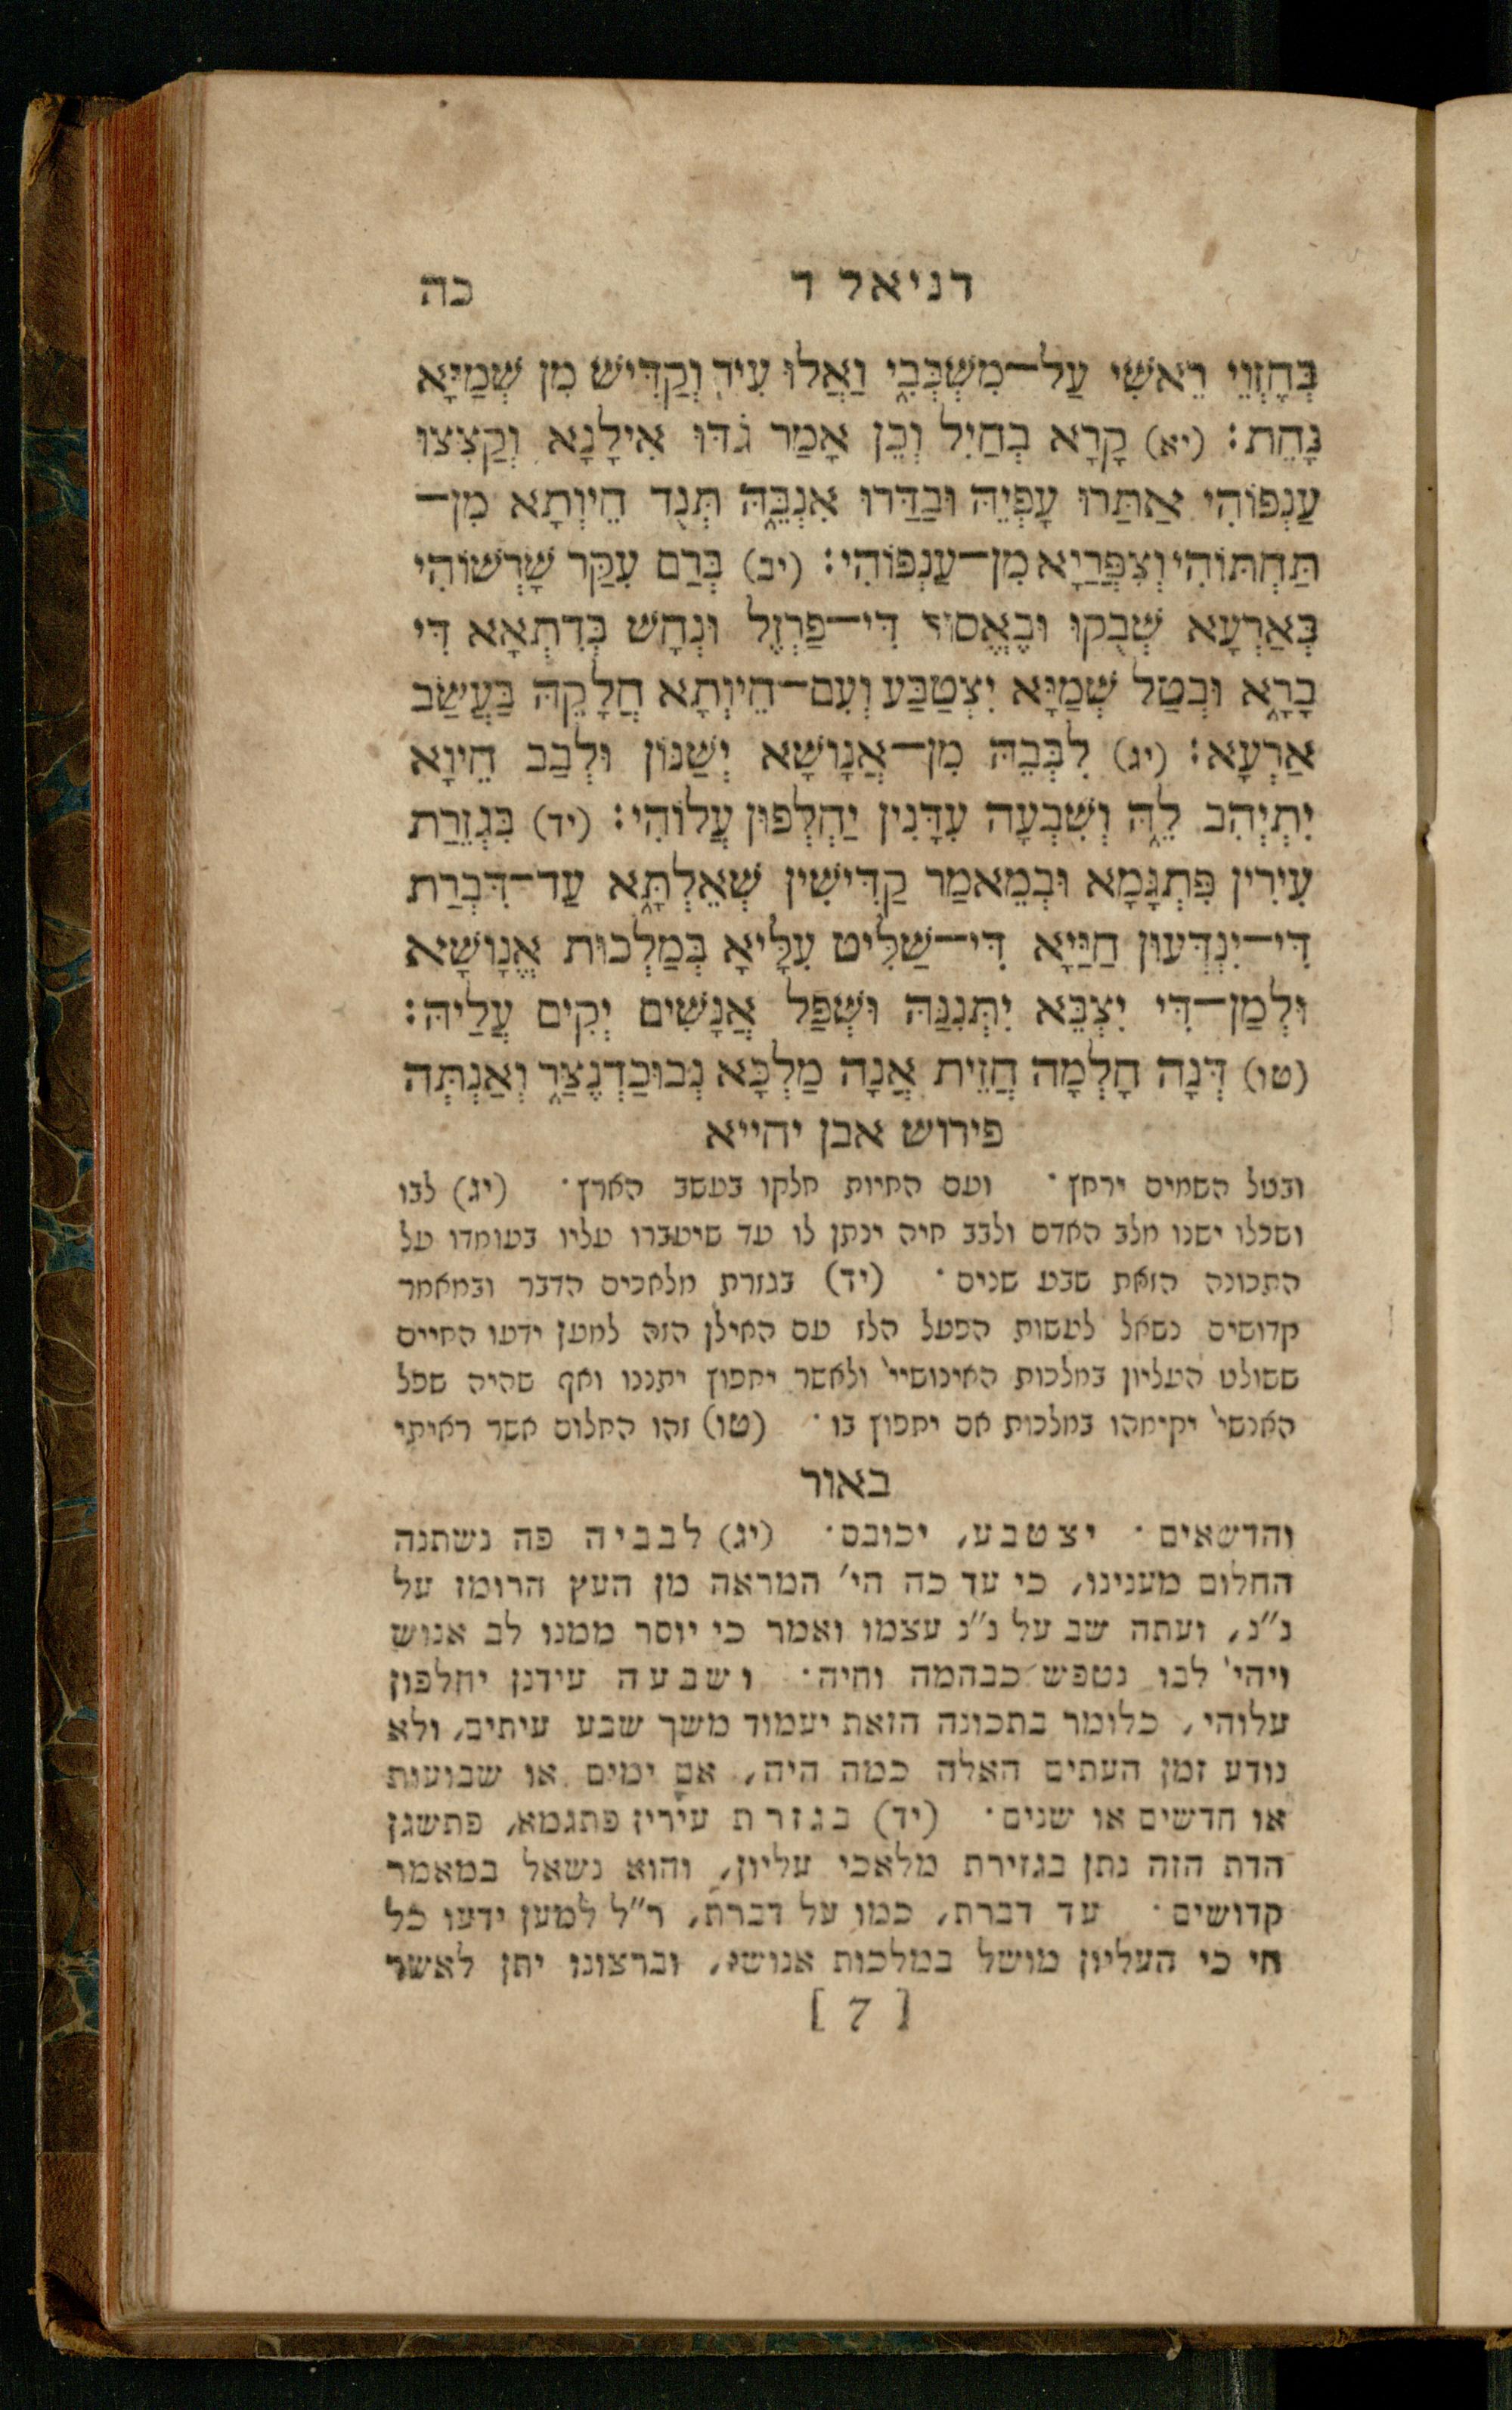 דניאל ד כה
בְּחֶזְוֵי רֵאשִׁי עַל־מִשְׁכְּבִי וַאֲלוּ עִיר וְקַדִּישׁ מִן שְׁמַיָּא
נָחִת׃ (יא) קָרֵא בְחַיִל וְכֵן אָמַר גֹּדּוּ אִילָנָא וְקַצִּצוּ
עַנְפוֹהִי אַתַּרוּ עָפְיֵהּ וּבַדַּרוּ אִנְבֵּהּ תְּנֻד חֵיוְתָא מִן־
תַּחְתּוֹהִי וְצִפְּרַיָּא מִן־עַנְפוֹהִי׃ (יב) בְּרַם עִקַּר שָׁרְשׁוֹהִי
בְּאַרְעָא שְׁבֻקוּ וּבֶאֱסוּר דִּי־פַרְזֶל וּנְחָשׁ בְּדִתְאָא דִּי
בָרָא וּבְטַל שְׁמַיָּא יִצְטַבַּע וְעִם־חֵיוְתָא חֲלָקֵהּ בַּעֲשַׂב
אַרְעָא׃ (יג) לִבְבֵהּ מִן־אֲנָושָׁא יְשַׁנּוֹן וּלְבַב חֵיוָא
יִתְיְהִב לֵהּ וְשִׁבְעָה עִדָּנִין יַחְלְפוּן עֲלוֹהִי׃ (יד) בִּגְזֵרַת
עִירִין פִּתְגָמָא וּבְמֵאמַר קַדִּישִׁין שְׁאֵלְתָּא עַד־דִּבְרַת
דִּי־יִנְדְּעוּן חַיַּיָּא דִּי־שַׁלִּיט עִלָּיאָ בְּמַלְכוּת אֲנָושָׁא
וּלְמַן־דִּי יִצְבֵּא יִתְּנִנַּהּ וּשְׁפַל אֲנָשִׁים יְקִים עֲלַיהּ׃
(טו) דְּנָה חֶלְמָה חֲזֵית אֲנָה מַלְכָּא נְבוּכַדְנֶצַּר וְאַנְתְּה
פירוש אבן יחייא
ובטל השמים ירחץ · ועם החיות חלקו בעשב הארץ · (יג) לבו
ושכלו ישנו מלב האדם ולבב חיה ינתן לו עד שיעברו עליו בעומדו על
התכונה הזאת שבע שנים · (יד) בגזרת מלאכים הדבר ובמאמר
קדושים נשאל לעשות הפעל הלז עם האילן הזה למען ידעו החיים
ששולט העליון במלכות האינושיי' ולאשר יחפוץ יתננו ואף שהיה שפל
האנשי' יקימהו במלכות אם יחפוץ בו · (טו) זהו החלום אשר ראיתי
באור
והדשאים · יצטבע, יכובס · (יג) לבביה פה נשתנה
החלום מענינו, כי עד כה הי' המראה מן העץ הרומז על
נ"נ, ועתה שב על נ"נ עצמו ואמר כי יוסר ממנו לב אנוש
ויהי' לבו נטפש כבהמה וחיה · ושבעה עידנן יחלפון
עלוהי, כלומר בתכונה הזאת יעמוד משך שבע עיתים, ולא
נודע זמן העתים האלה כמה היה, אם ימים או שבועות
או חדשים או שנים · (יד) בגזרת עירין פתגמא, פתשגן
הדת הזה נתן בגזירת מלאכי עליון, והוא נשאל במאמר
קדושים · עד דברת, כמו על דברת, ר"ל למען ידעו כל
חי כי העליון מושל במלכות אנושי, וברצונו יתן לאשר
[ 7 ]